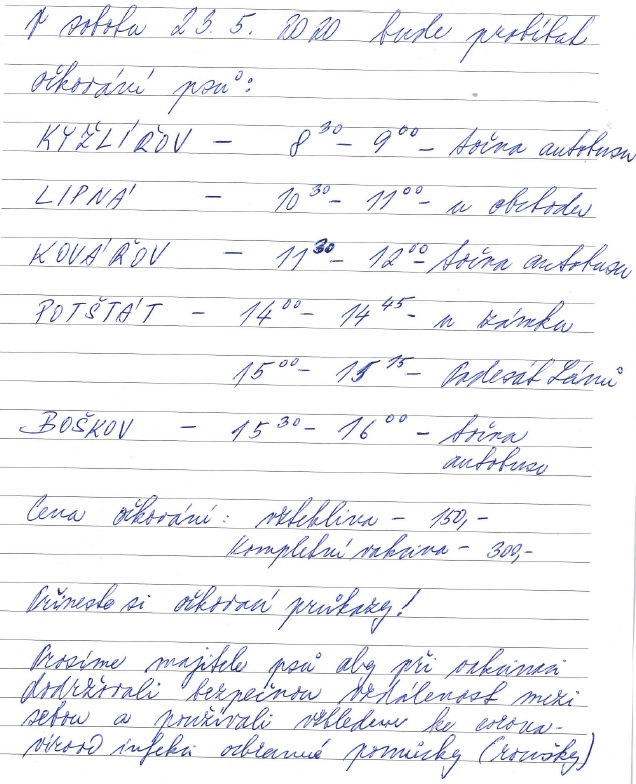 V sobotu 23. 5. 2020 bude probíhat
očkování psů:
KYŽLÍŘOV – 8³⁰ – 9⁰⁰ – točna autobusu
LIPNÁ – 10³⁰ – 11⁰⁰ – u obchodu
KOVÁŘOV – 11³⁰ – 12⁰⁰ – točna autobusu
POTŠTÁT – 14⁰⁰ – 14⁴⁵ – u zámku
15⁰⁰ – 15¹⁵ – Padesát Lánů
BOŠKOV – 15³⁰ – 16⁰⁰ – točna
autobusu
Cena očkování: vzteklina – 150,-
Kompletní vakcína – 300,-
Přineste si očkovací průkazy!
Prosíme majitele psů aby při vakcinaci
dodržovali bezpečnou vzdálenost mezi
sebou a používali vzhledem ke corona-
virové infekci ochranné pomůcky (roušky)